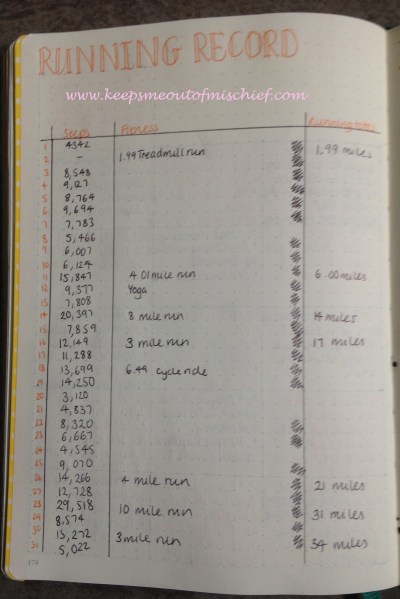 RUNNING RECORD
www.keepsmeoutofmischief.com
Steps Fitness Running total
1 4342
2 – 1.99 Treadmill run 1.99 miles
3 8,548
4 9,127
5 8,764
6 9,694
7 7,783
8 5,466
9 6,007
10 6,124
11 15,847 4.01 mile run 6.00 miles
12 9,377 Yoga
13 7,808
14 20,397 8 mile run 14 miles
15 7,859
16 12,149 3 mile run 17 miles
17 11,288
18 13,699 6.49 cycle ride
19 14,250
20 3,120
21 4,837
22 8,320
23 6,667
24 4,545
25 9,070
26 14,266 4 mile run 21 miles
27 12,728
28 29,518 10 mile run 31 miles
29 8,574
30 15,272 3 mile run 34 miles
31 5,022